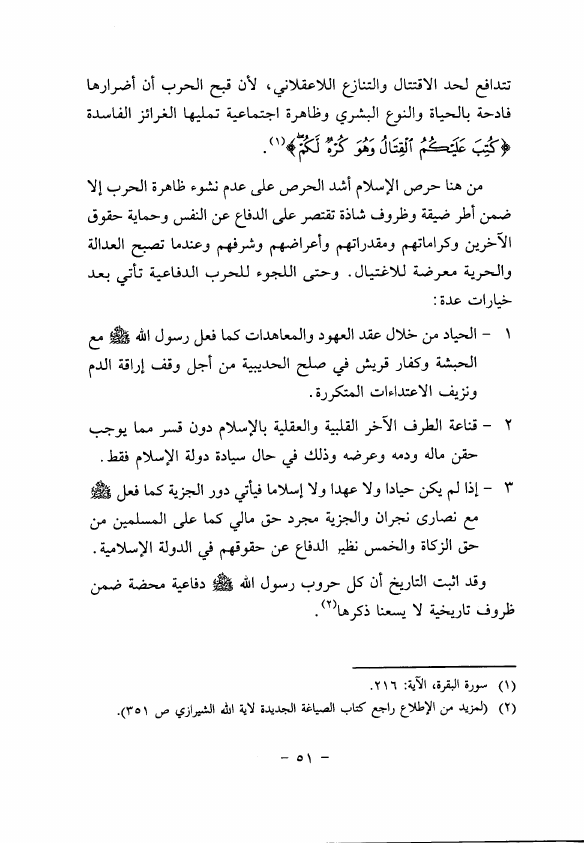 تتدافع لحد الاقتتال والتنازع اللاعقلاني، لأن قبح الحرب أن أضرارها
فادحة بالحياة والنوع البشري وظاهرة اجتماعية تمليها الغرائز الفاسدة
﴿كُتِبَ عَلَيْكُمُ ٱلْقِتَالُ وَهُوَ كُرْهٌ لَّكُمْ﴾(١).
من هنا حرص الإسلام أشد الحرص على عدم نشوء ظاهرة الحرب إلا
ضمن أطر ضيقة وظروف شاذة تقتصر على الدفاع عن النفس وحماية حقوق
الآخرين وكراماتهم ومقدراتهم وأعراضهم وشرفهم وعندما تصبح العدالة
والحرية معرضة للاغتيال. وحتى اللجوء للحرب الدفاعية تأتي بعد
خيارات عدة:
١ - الحياد من خلال عقد العهود والمعاهدات كما فعل رسول الله ﷺ مع
الحبشة وكفار قريش في صلح الحديبية من أجل وقف إراقة الدم
ونزيف الاعتداءات المتكررة.
٢ - قناعة الطرف الآخر القلبية والعقلية بالإسلام دون قسر مما يوجب
حقن ماله ودمه وعرضه وذلك في حال سيادة دولة الإسلام فقط.
٣ - إذا لم يكن حيادا ولا عهدا ولا إسلاما فيأتي دور الجزية كما فعل ﷺ
مع نصارى نجران والجزية مجرد حق مالي كما على المسلمين من
حق الزكاة والخمس نظير الدفاع عن حقوقهم في الدولة الإسلامية.
وقد اثبت التاريخ أن كل حروب رسول الله ﷺ دفاعية محضة ضمن
ظروف تاريخية لا يسعنا ذكرها(٢).
(١) سورة البقرة، الآية: ٢١٦.
(٢) (لمزيد من الإطلاع راجع كتاب الصياغة الجديدة لاية الله الشيرازي ص ٣٥١).
- ٥١ -